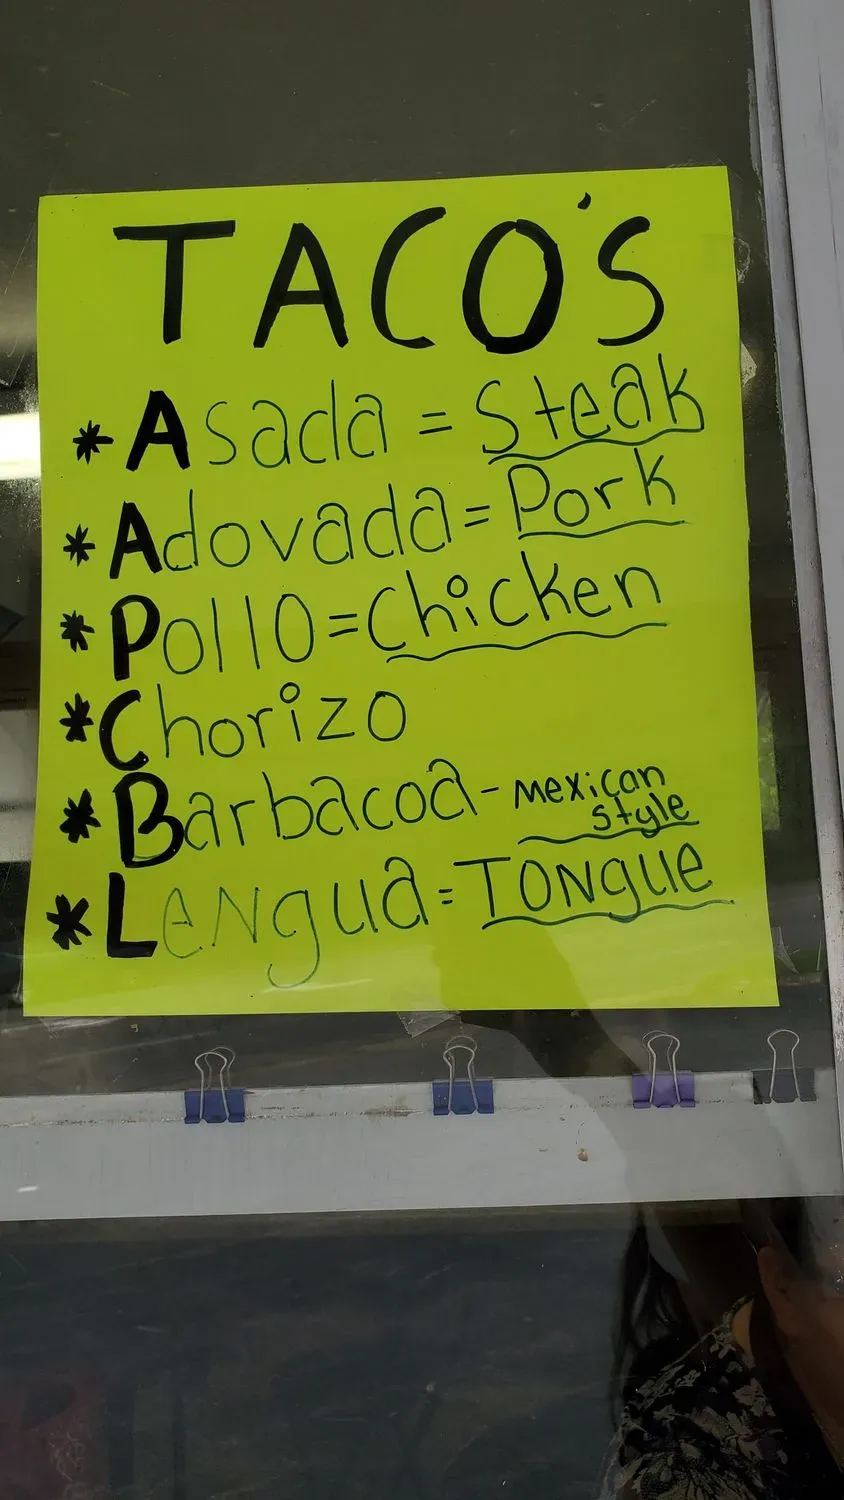 TACO'S
* Asada = Steak
* Adovada = Pork
* Pollo = Chicken
* Chorizo
* Barbacoa - Mexican
style
* Lengua = Tongue